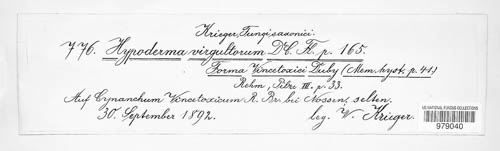 Krieger, Fungi saxonici.
776. Hypoderma virgultorum DC. Fl. p. 165.
Forma Vincetoxici Duby (Mem. hyst. p. 41)
Rehm, Pilze III. p. 33.
Auf Cynanchum Vincetoxicum R. Br. bei Nossen, selten.
30. September 1892. leg. W. Krieger.
US NATIONAL FUNGUS COLLECTIONS
979040